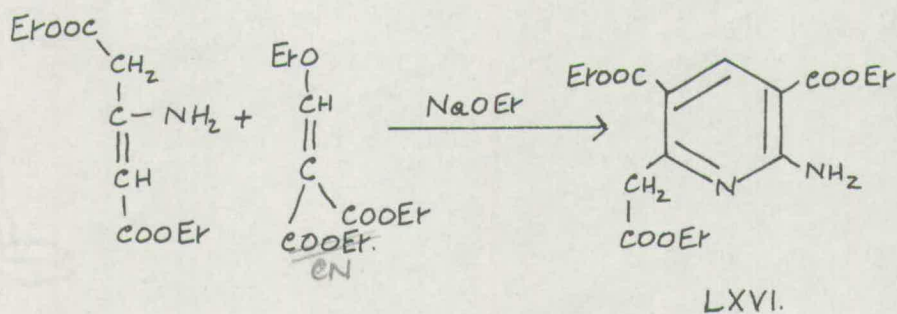 EtOOC
CH₂
C — NH₂ +
CH
COOEt
EtO
CH
C
COOEt
COOEt.
CN
NaOEt
EtOOC
COOEt
N
NH₂
CH₂
COOEt
LXVI.